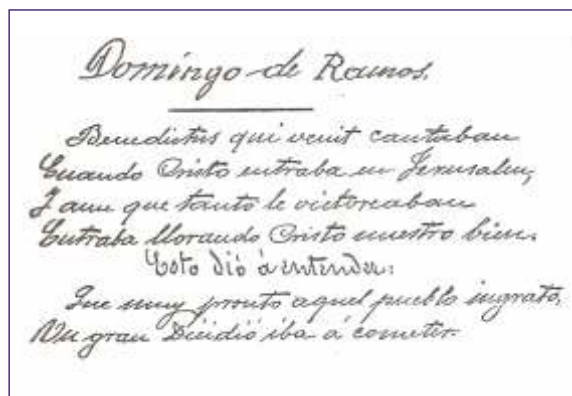 Domingo de Ramos.
Benedictus qui venit cantaban
Cuando Cristo entraba en Jerusalen,
I aun que tanto le victoreaban
Entraba llorando Cristo nuestro bien.
Esto dió á entender:
Que muy pronto aquel pueblo ingrato,
Un gran Diidió iba á cometer.